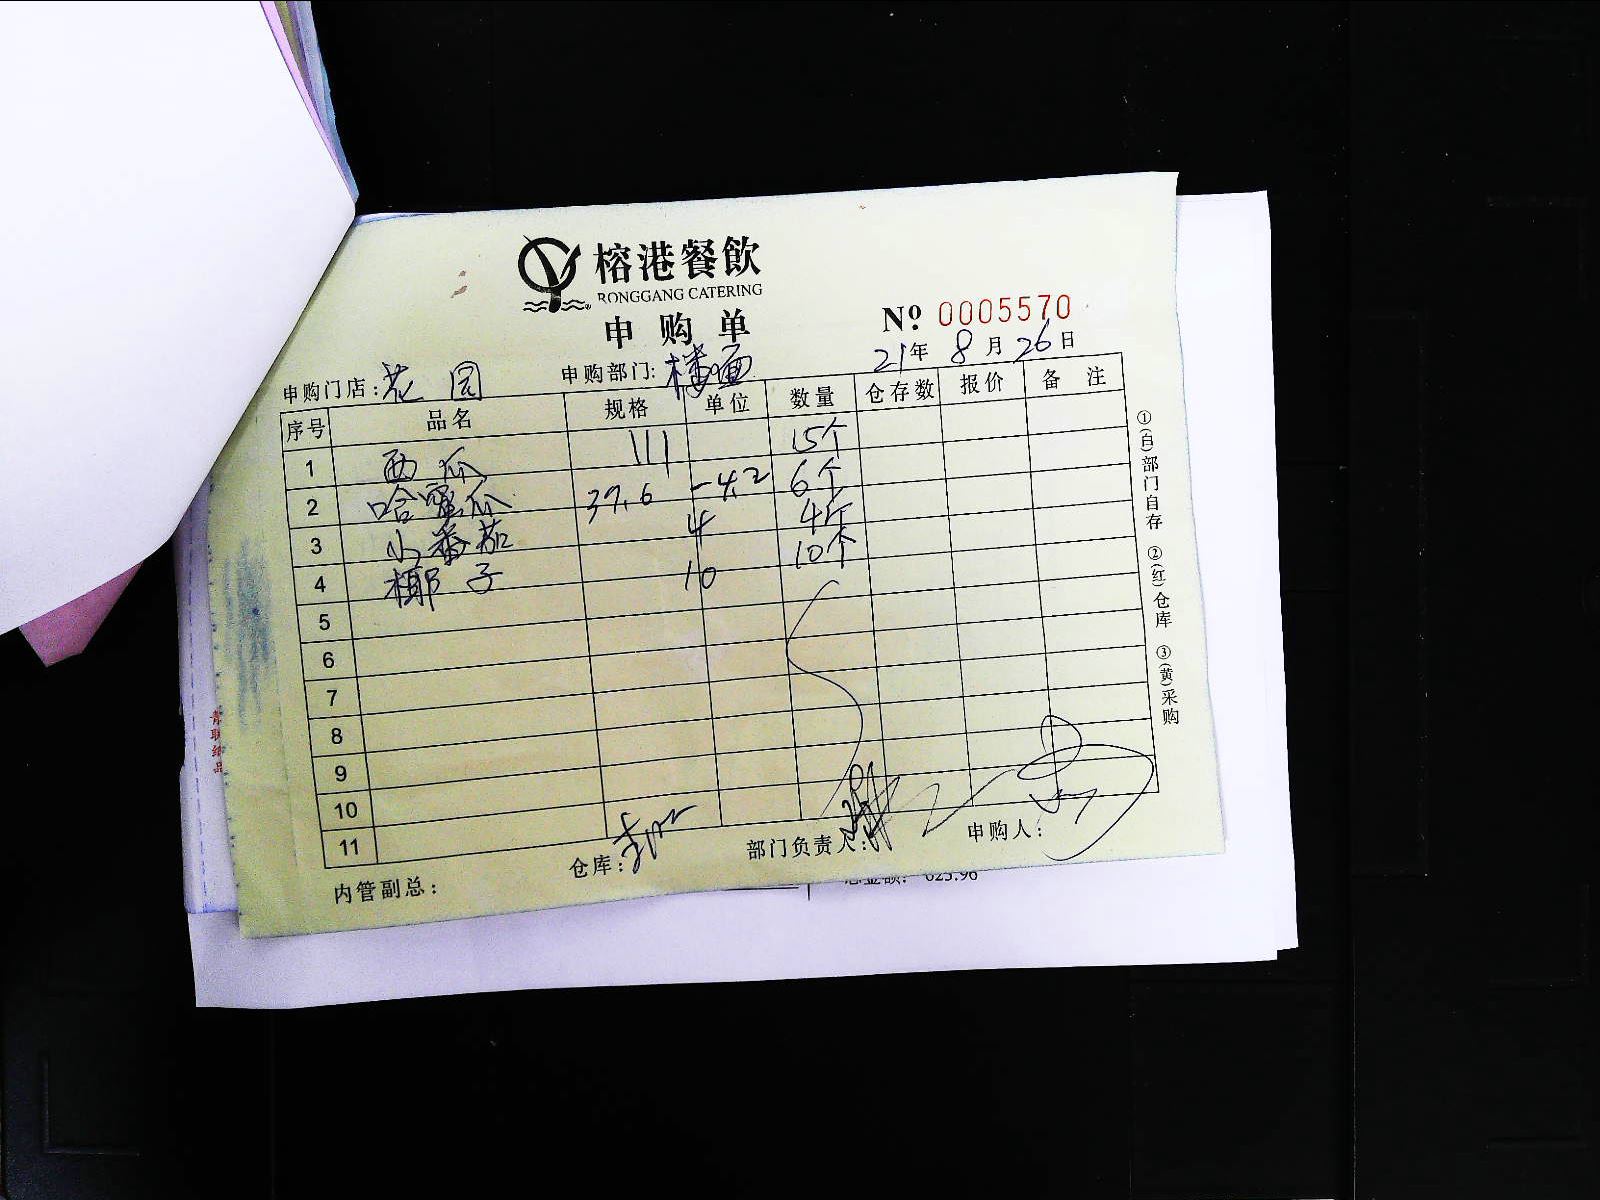 榕港餐飲
RONGGANG CATERING
申购单
№ 0005570
21年 8月 26日
申购门店:花园 申购部门:楼面
序号 品名 规格 单位 数量 仓存数 报价 备注
1 西瓜 111 15个
2 哈蜜瓜 37.6 -4.2 6个
3 小番茄 4 4斤
4 椰子 10 10个
5
6
7
8
9
10
11
内管副总: 仓库: 部门负责人: 申购人:
①(白)部门自存 ②(红)仓库 ③(黄)采购
总金额: 625.96